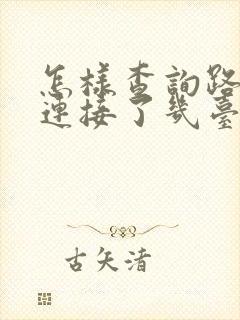 怎樣查詢路
連接了幾臺
古矢清